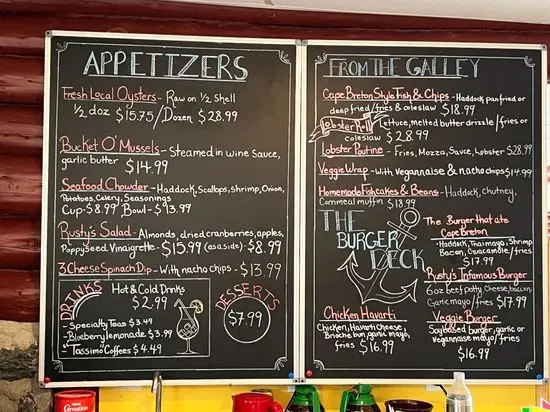 APPETIZERS
Fresh Local Oysters - Raw on 1/2 Shell
1/2 doz $15.75 / Dozen $28.99
Bucket O' Mussels - Steamed in wine sauce,
garlic butter $14.99
Seafood Chowder - Haddock, Scallops, shrimp, Onion,
Potatoes, Celery, Seasonings
Cup - $8.99 Bowl - $13.99
Rusty's Salad - Almonds, dried cranberries, apples,
Poppyseed Vinaigrette - $15.99 (as a side) - $8.99
3 Cheese Spinach Dip - With nacho chips - $13.99
DRINKS
Hot & Cold Drinks
$2.99
- Specialty Teas $3.49
- Blueberry lemonade $3.99
- "Tassimo" Coffees $4.49
DESSERTS
$7.99
FROM THE GALLEY
Cape Breton Style Fish & Chips - Haddock pan fried or
deep fried / fries & coleslaw $18.99
Lobster Roll - Lettuce, melted butter drizzle / fries or
coleslaw $28.99
Lobster Poutine - Fries, Mozza, Sauce, Lobster $28.99
Veggie Wrap - With Vegannaise & nacho chips $14.99
Homemade Fishcakes & Beans - Haddock, chutney,
Cornmeal muffin $18.99
THE
BURGER
DECK
The Burger that ate
Cape Breton
- Haddock, Thai mayo, Shrimp
Bacon, Guacamole / fries
$17.99
Rusty's Infamous Burger
6oz beef patty, cheese, bacon
Garlic mayo / fries $17.99
Chicken Havarti
Chicken, Havarti Cheese,
Brioche bun, garlic mayo,
fries $16.99
Veggie Burger
Soy based burger, garlic or
Vegannaise mayo / fries
$16.99
Carnation